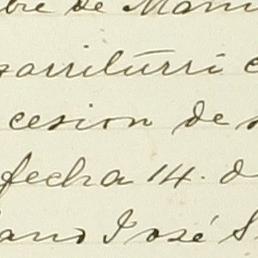 bre de Manu
garriturri
cesion de
fecha 14. d
ano José S